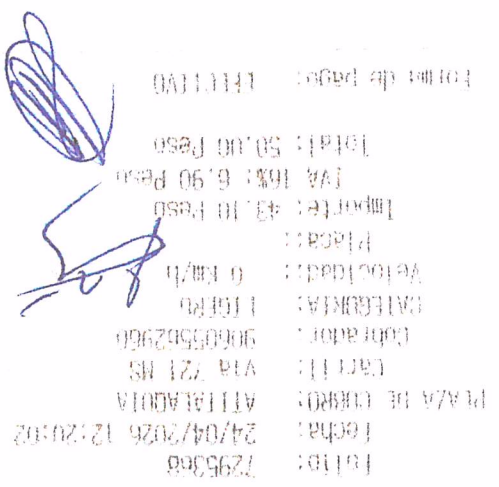 Folio: 7295368
Fecha: 24/04/2026 12:20:02
PLAZA DE COBRO: ATITALAQUIA
Carril: Via 721 MS
Cobrador:
CATEGORIA: LIGERO
Velocidad: 0 Km/h
Placa::
Importe: 43.10 Peso
IVA 16%: 6.90 Peso
Total: 50.00 Peso
Forma de pago: EFECTIVO